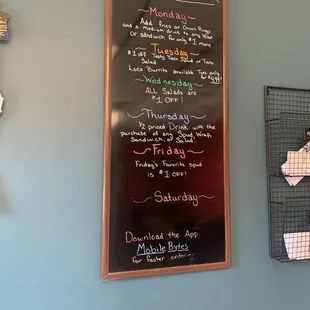 Monday
Add Fries or Onion Rings
and a medium drink to any Wrap
or Sandwich for only $1 more
Tuesday
$1 off Tasty Taco Spud or Taco
Salad
Loco Burrito available Tues. only
Wednesday
ALL Salads are
$1 OFF!
Thursday
½ priced Drink with the
purchase of any Spud, Wrap,
Sandwich, or Salad!
Friday
Friday's Favorite Spud
is $1 OFF!
Saturday
Download the App
Mobile Bytes
for faster ordering